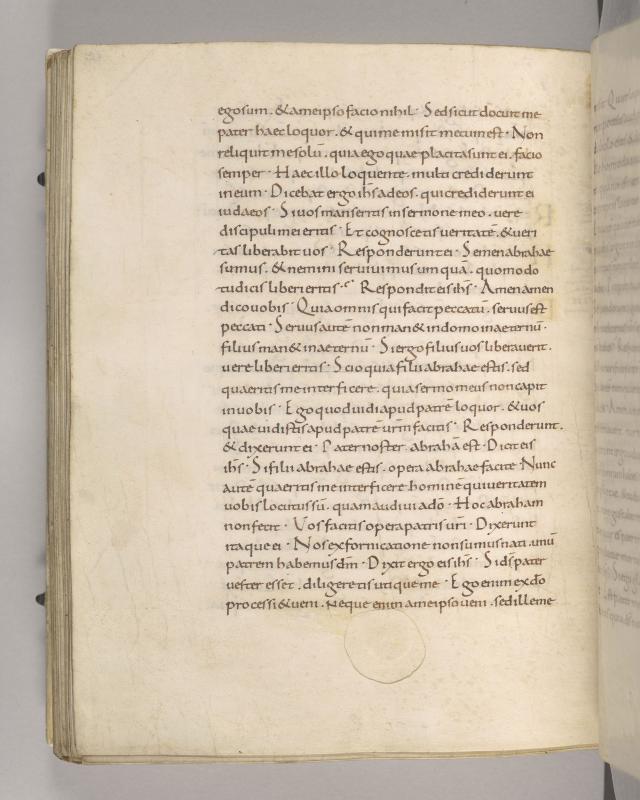 egosum . & ameipso facio nihil · Sed sicut docuit me
pater haec loquor . & qui me misit mecum est · Non
reliquit me solū . quia ego quae placita sunt ei . facio
semper · Haec illo loquente . multi crediderunt
in eum · Dicebat ergo ihs ad eos . qui crediderunt ei
iudaeos · Si uos manseritis in sermone meo . uere
discipuli mei eritis · Et cognoscetis ueritatē . & ueri
tas liberabit uos · Responderunt ei · Semen abrahae
sumus . & nemini seruiuimus umquā . quomodo
tu dicis liberi eritis · Respondit eis ihs · Amen amen
dico uobis · Quia omnis qui facit peccatū . seruus est
peccati · Seruus autē non man& in domo in aeternū ·
filius man& in aeternū · Si ergo filius uos liberauerit .
uere liberi eritis · Scio quia filii abrahae estis . sed
quaeritis me interficere . quia sermo meus non capit
in uobis · Ego quod uidi apud patrē loquor . & uos
quae uidistis apud patrē urm̄ facitis · Responderunt .
& dixerunt ei · Pater noster abrahā est · Dicit eis
ihs · Si filii abrahae estis . opera abrahae facite · Nunc
autē quaeritis me interficere hominē qui ueritatem
uobis locutus sū . quam audiui a dō · Hoc abraham
non fecit · Uos facitis opera patris uri · Dixerunt
itaque ei · Nos ex fornicatione non sumus nati . unū
patrem habemus dm̄ · Dixit ergo eis ihs · Si ds̄ pater
uester esset . diligeretis utique me · Ego enim ex dō
processi & ueni . neque enim a me ipso ueni . sed ille me